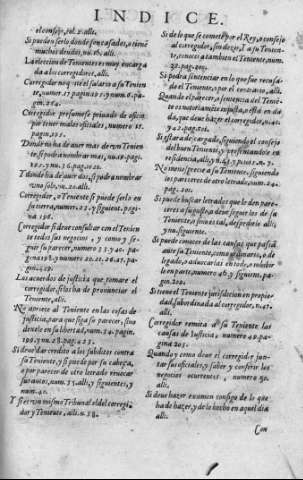 INDICE.
el consejo, fol. 2. alli.
Si pueden serlo donde son casados, o tienē
muchos deudos, nu. 16. alli.
La eleccion de Tenientes es muy encarga
da a los corregidores, alli.
Corregidor no quite el salario a su Tenien
te, numer. 17. pagin. 105. y num. 6. pa-
gin. 264.
Corregidor presumese privado de oficio
por tener malos oficiales, numero 18.
pagin. 105.
Donde no ha de aver mas de vn Tenien
te, si podra nombrar mas, nu. 19. pagi.
105. y nu. 36. pag. 202. alli.
Y donde ha de aver dos, si podra nombrar
vno solo, nu. 20. alli.
Corregidor, o Teniente si puede serlo en
su tierra, numer. 22. y siguient. pagi-
na 196.
Corregidor si deve consultar con el Tenien
te todos sus negocios, y como y se-
guir su parecer, numero 31. y 40. pa-
gina 198. y numero 20. 21. 26. 41. pa-
gin.
Los acuerdos de justicia que tomare el
corregidor, si los ha de pronunciar el
Teniente, alli.
No apriete al Teniente en las cosas de
justicia, para que siga su parecer, sino
denele en su libertad, num. 24. pagin.
199. y nu. 28. pag. 425.
Si deve dar credito a los subditos contra
su Teniente, y si puede por su cabeça,
o por parecer de otro letrado revocar
sus autos, num. 35. alli, y siguientes, y
num. 41.
Y si es vn mismo Tribunal el del corregi-
dor y Teniente, alli. n. 58.
Si de lo que se comete por el Rey, o consejo
al corregidor, sin dezir, I a su Tenien-
te, conoce a tambien el Teniente, num.
38. pag. 201.
Si podra sentenciar en lo que fue recusa-
do el Teniente, num. 40. pag. 201. alli.
Quando el parecer, o sentencia del Tenie
te es notoriamēte injusta, o està en du-
da, que deve hazer el corregidor, n. 41.
y 42. pag. 201.
Si estarà descargado, siguiendo el consejo
del buen Teniente, y presentandole en
residencia, alli, y n. 43. y pu. 10. n. 7.
No menosprecie a su Teniente, siguiendo
los pareceres de otro letrado, num. 24.
pag. 201.
Si puede buscar letrados que le den pare-
ceres a su gusto, o deve seguir los de su
Teniente, o sino es tal, despedirle alli,
y nu. siguiente.
Si puede conocer de las causas que passā
ante su Teniente, como ordinario, o de-
legado, o avocarlas en todo, o inhibir-
le en parte, num. 46. y siguiem. pagin.
202.
Si tiene el Teniente jurisdiccion en proprie-
dad, subordinada al corregidor, n. 47.
alli.
Corregidor remita a su Teniente las
causas de Justicia, numero 49. pa
gina 203.
Quando y como deve el corregidor jun-
tar sus oficiales, y saber y conferir los
negocios ocurrentes, numero 50.
alli.
Si deve hazer examen consigo de lo que
ha de hazer, y de lo hecho en aquel dia
alli.
Con